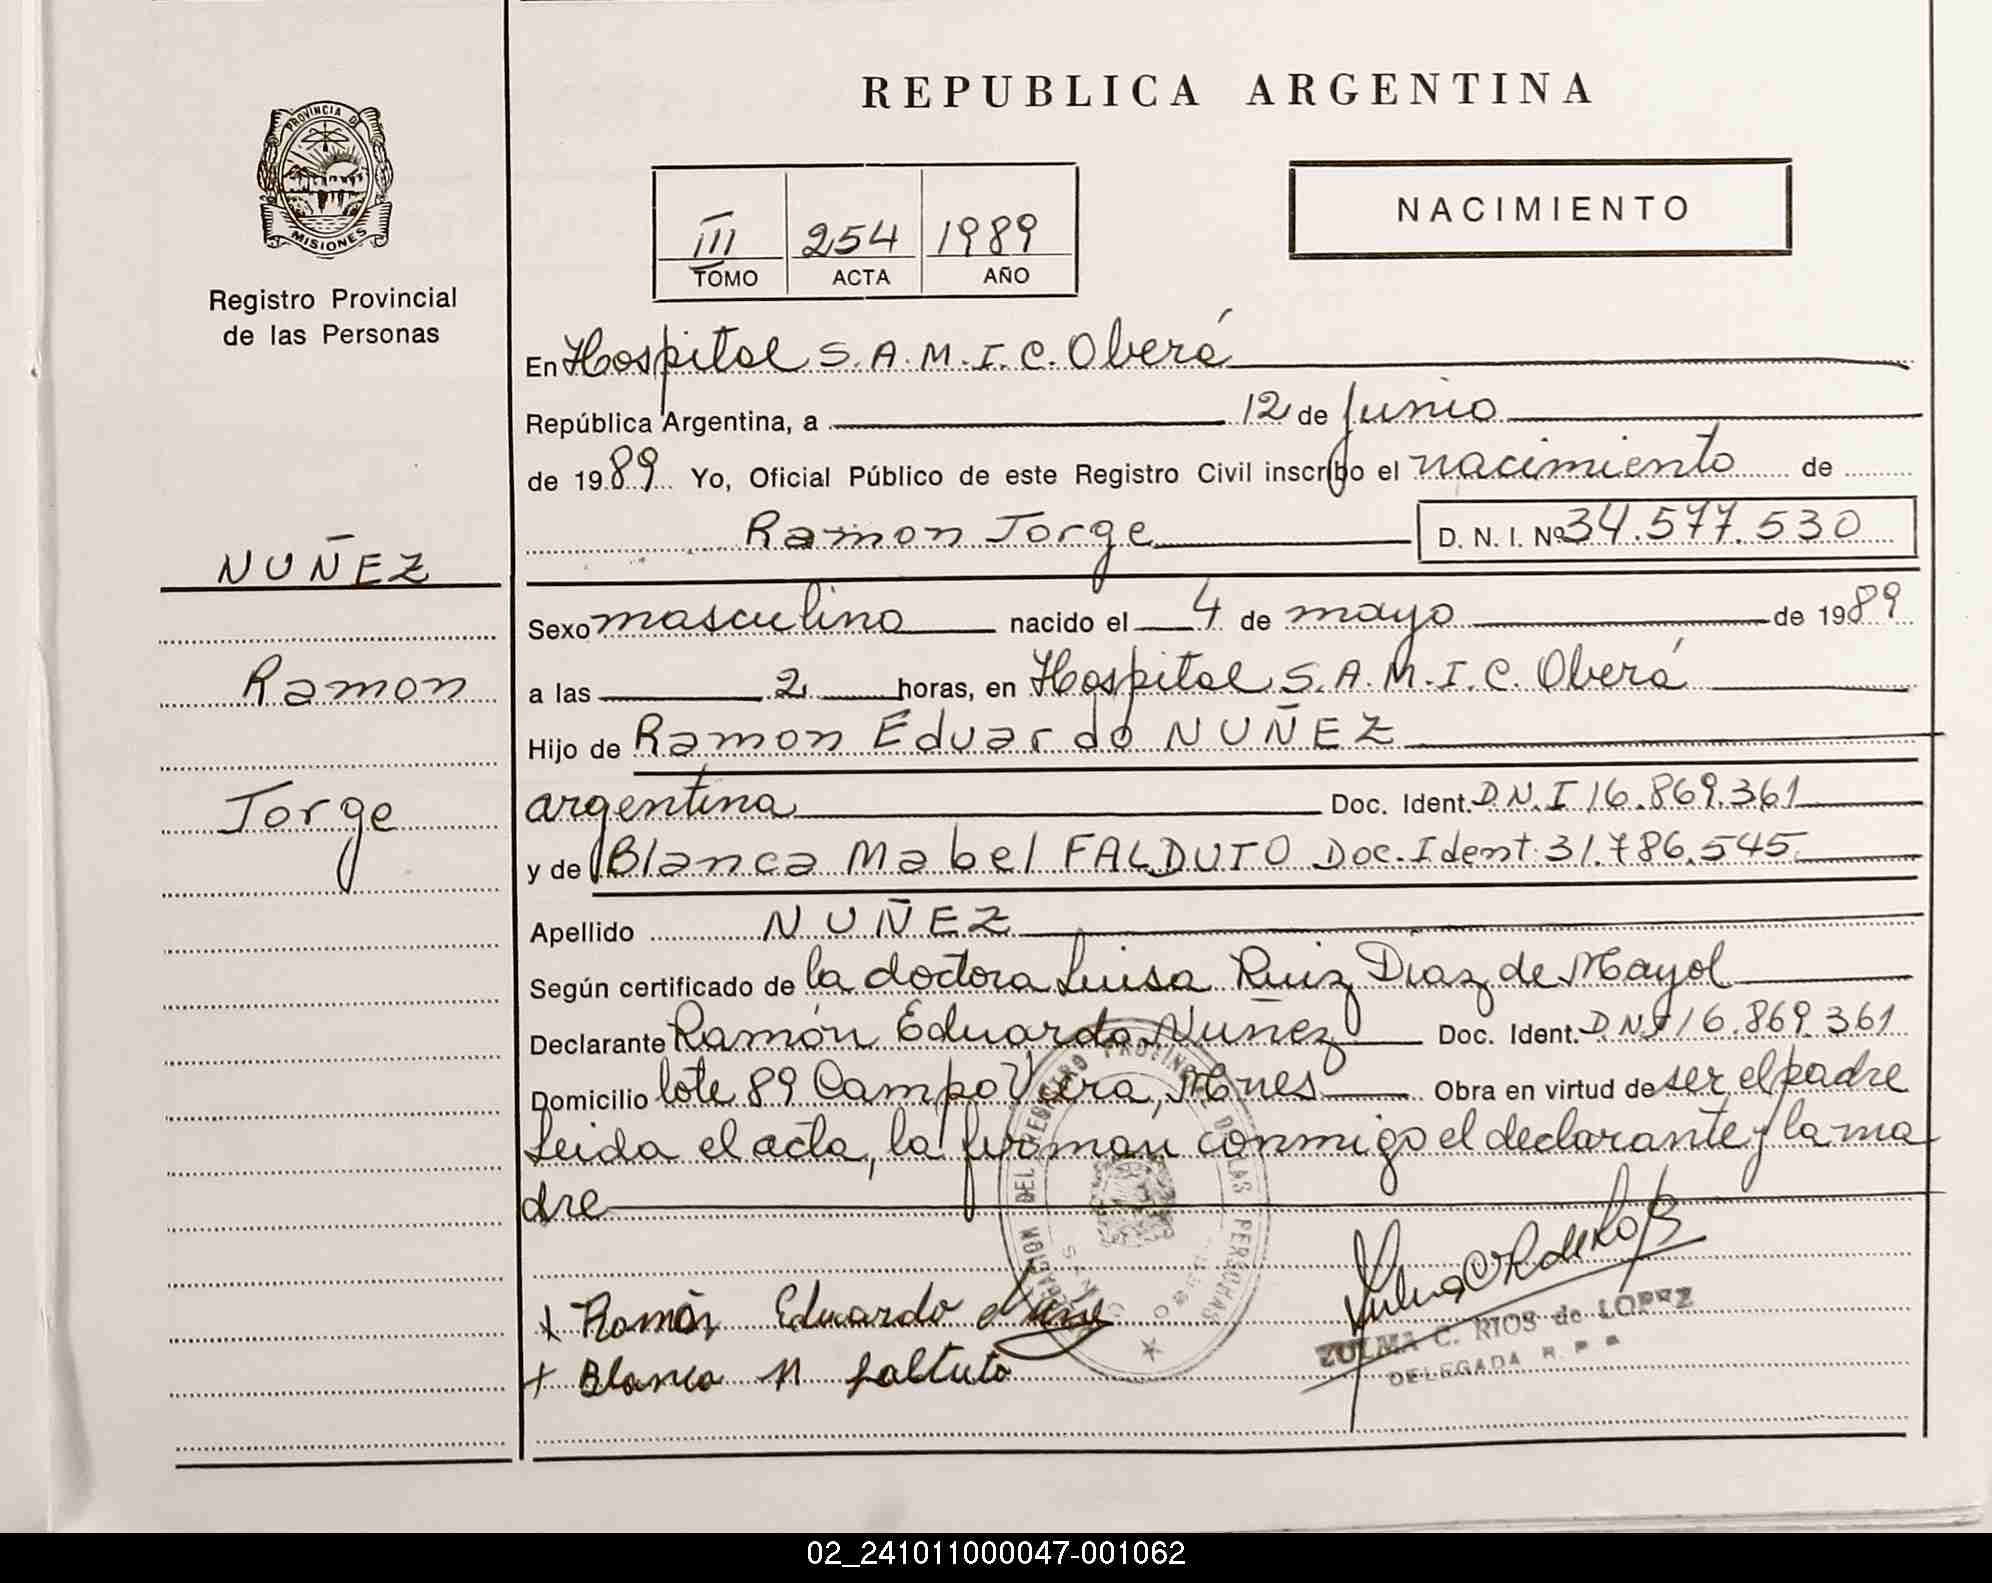 REPUBLICA ARGENTINA
PROVINCIA D
MISIONES
Registro Provincial
de las Personas
III 254 1989
TOMO ACTA AÑO
NACIMIENTO
En Hospital S.A.M.I.C. Oberá
República Argentina, a 12 de Junio
de 1989 Yo, Oficial Público de este Registro Civil inscribo el nacimiento de
Ramon Jorge D. N. I. Nº 34.577.530
NUÑEZ
Ramon
Jorge
Sexo masculino nacido el 4 de mayo de 1989
a las 2 horas, en Hospital S.A.M.I.C. Oberá
Hijo de Ramon Eduardo NUÑEZ
argentina Doc. Ident. D.N.I 16.869.361
y de Blanca Mabel FALDUTO Doc. Ident 31.786.545
Apellido NUÑEZ
Según certificado de la doctora Luisa Ruiz Diaz de Mayol
Declarante Ramón Eduardo Nuñez Doc. Ident. D.N.I 16.869.361
Domicilio lote 89 Campo Viera, Mnes Obra en virtud de ser el padre
Leida el acta, la firman conmigo el declarante y la ma
dre
Ramón Eduardo
Blanca M
ZULMA C. RIOS de LOPEZ
DELEGADA R. P.
DEL REGISTRO PROVINCIAL DE LAS PERSONAS
02_241011000047-001062